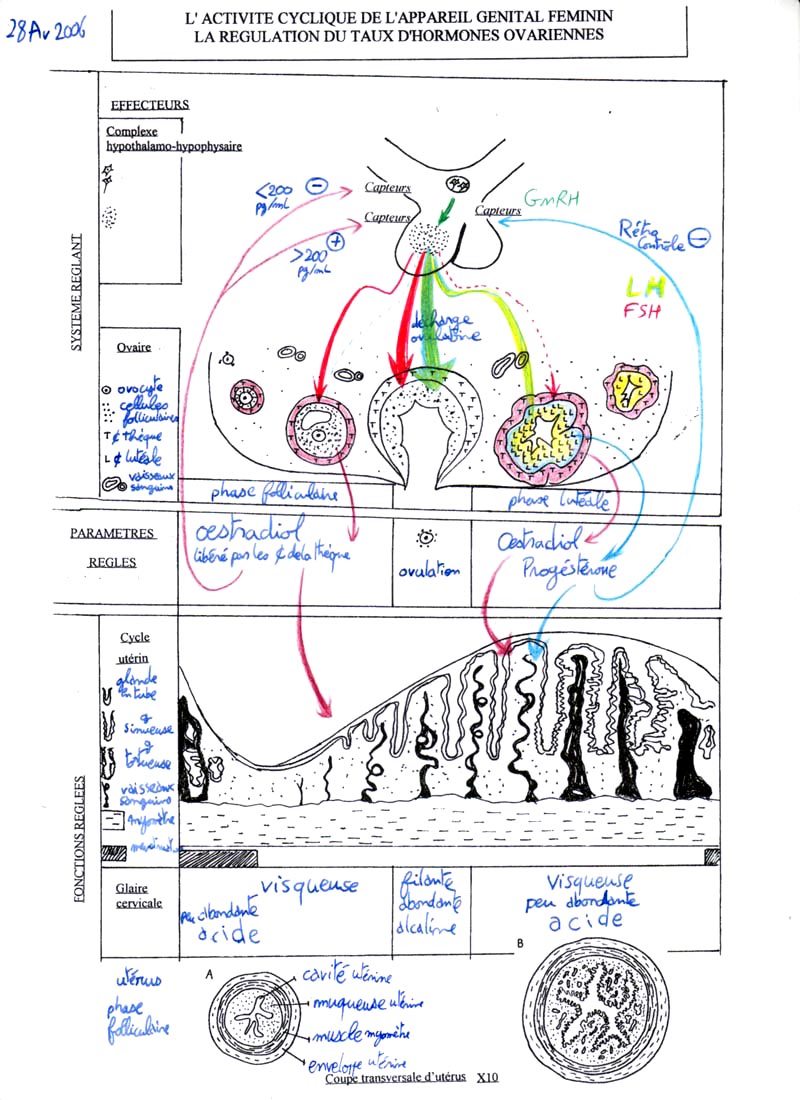 28 Av 2006
L' ACTIVITE CYCLIQUE DE L'APPAREIL GENITAL FEMININ
LA REGULATION DU TAUX D'HORMONES OVARIENNES
SYSTEME REGLANT
EFFECTEURS
Complexe
hypothalamo-hypophysaire
<200
pg/mL
⊖
>200
pg/mL
⊕
Capteurs
Capteurs
Capteurs
GnRH
Rétro
Contrôle ⊖
LH
FSH
décharge
ovulatoire
Ovaire
ovocyte
cellules
folliculaires
T ¢ thèque
L ¢ lutéale
vaisseaux
sanguins
phase folliculaire
phase lutéale
PARAMETRES
REGLES
oestradiol
libéré par les ¢ de la thèque
ovulation
Oestradiol
Progéstérone
FONCTIONS REGLEES
Cycle
utérin
glande
en tube
sinueuse
tortueuse
vaisseaux
sanguins
myomètre
Glaire
cervicale
visqueuse
peu abondante
acide
filante
abondante
alcaline
Visqueuse
peu abondante
acide
utérus
phase
folliculaire
A
cavité utérine
muqueuse utérine
muscle myomètre
enveloppe utérine
B
Coupe transversale d'utérus X10